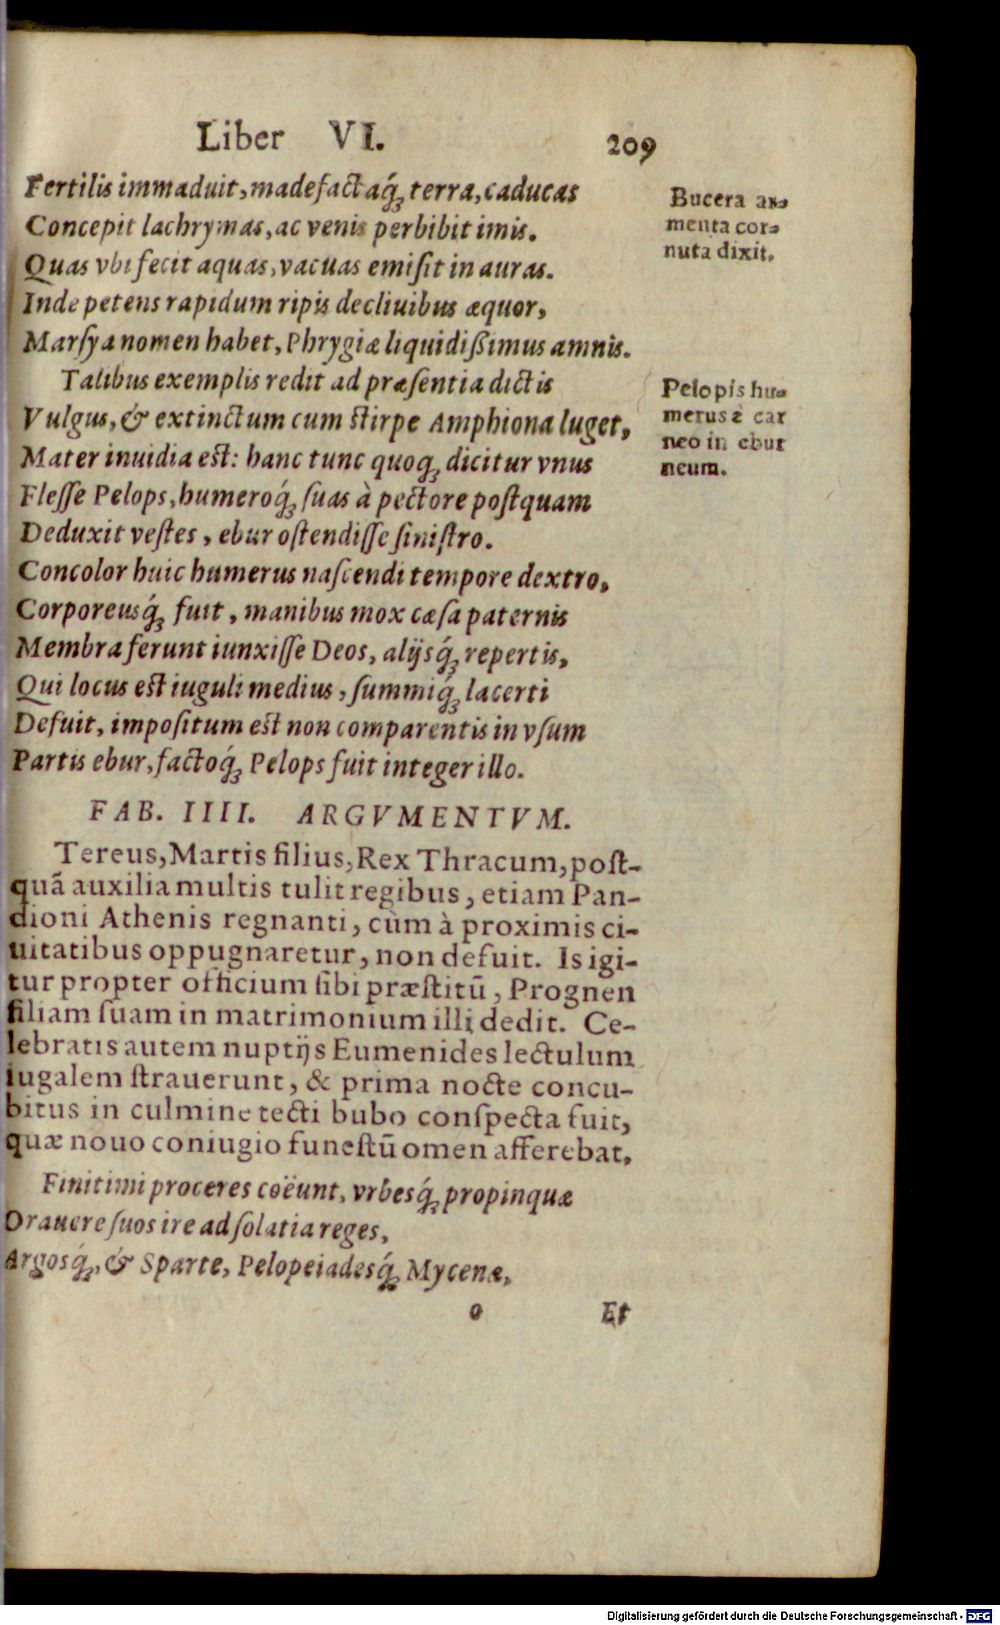 Liber VI. 209
Fertilis immaduit, madefactaq́; terra, caducas
Concepit lachrymas, ac venis perbibit imis.
Quas vbi fecit aquas, vacuas emiſit in auras.
Inde petens rapidum ripis decliuibus æquor,
Marſya nomen habet, Phrygiæ liquidiſsimus amnis.
Talibus exemplis redit ad præſentia dictis
Vulgus, & extinctum cum ſtirpe Amphiona luget,
Mater inuidia est: hanc tunc quoq; dicitur vnus
Fleſſe Pelops, humeroq́; ſuas à pectore poſtquam
Deduxit veſtes, ebur oſtendiſſe ſiniſtro.
Concolor huic humerus naſcendi tempore dextro,
Corporeusq́; fuit, manibus mox cæſa paternis
Membra ferunt iunxiſſe Deos, alijsq́; repertis,
Qui locus est iuguli medius, ſummiq́; lacerti
Defuit, impoſitum est non comparentis in vſum
Partis ebur, factoq́; Pelops fuit integer illo.
Bucera ar-
menta cor-
nuta dixit.
Pelopis hu-
merus è car
neo in ebur
neum.
FAB. IIII. ARGVMENTVM.
Tereus, Martis filius, Rex Thracum, poſt-
quã auxilia multis tulit regibus, etiam Pan-
dioni Athenis regnanti, cùm à proximis ci-
uitatibus oppugnaretur, non defuit. Is igi-
tur propter officium ſibi præſtitũ, Prognen
filiam ſuam in matrimonium illi dedit. Ce-
lebratis autem nuptijs Eumenides lectulum
iugalem ſtrauerunt, & prima nocte concu-
bitus in culmine tecti bubo conſpecta fuit,
quæ nouo coniugio funeſtũ omen afferebat.
Finitimi proceres coëunt, vrbesq́; propinquæ
Orauere ſuos ire ad ſolatia reges,
Argosq́;, & Sparte, Pelopeiadesq́; Mycenæ,
o Et
Digitalisierung gefördert durch die Deutsche Forschungsgemeinschaft - DFG